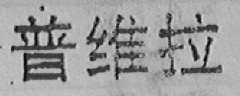 普维拉